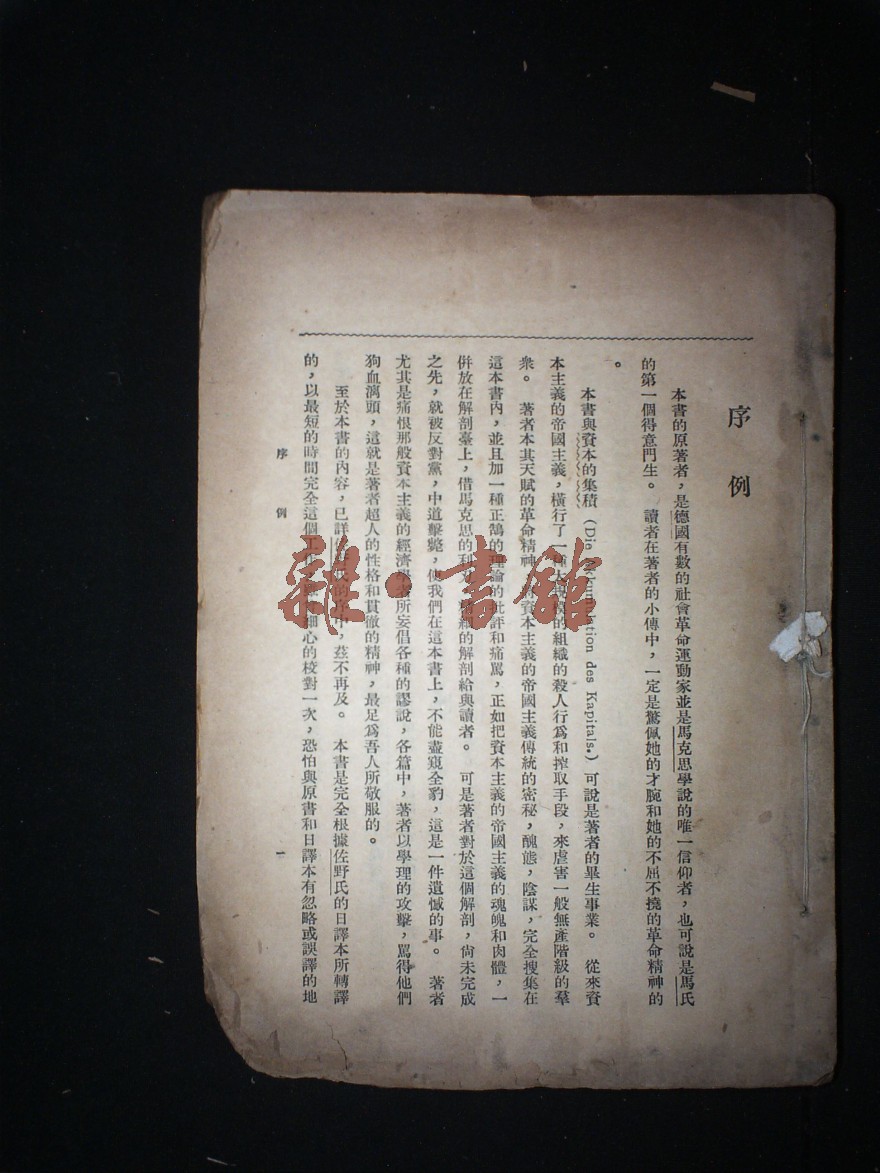 序例
本書的原著者，是德國有數的社會革命運動家並是馬克思學說的唯一信仰者，也可說是馬氏
的第一個得意門生。　讀者在著者的小傳中，一定是驚佩她的才腕和她的不屈不撓的革命精神的
。
本書與資本的集積（Die Akkumulation des Kapitals.）可說是著者的畢生事業。　從來資
本主義的帝國主義，橫行了一種大規模的組織的殺人行爲和搾取手段，來虐害一般無產階級的羣
衆。　著者本其天賦的革命精神，資本主義的帝國主義傳統的密秘，醜態，陰謀，完全搜集在
這本書內，並且加一種正鵠的理論的批評和痛罵，正如把資本主義的帝國主義的魂魄和肉體，一
併放在解剖臺上，借馬克思的利刀，細的解剖給與讀者。　可是著者對於這個解剖，尙未完成
之先，就被反對黨，中道擊斃，使我們在這本書上，不能盡窺全豹，這是一件遺憾的事。　著者
尤其是痛恨那般資本主義的經濟學者所妄倡各種的謬說，各篇中，著者以學理的攻擊，罵得他們
狗血漓頭，這就是著者超人的性格和貫徹的精神，最足爲吾人所敬服的。
至於本書的內容，已詳氏的序中，茲不再及。　本書是完全根據佐野氏的日譯本所轉譯
的，以最短的時間完全這個工細心的校對一次，恐怕與原書和日譯本有忽略或誤譯的地
序例　一
雜·書館